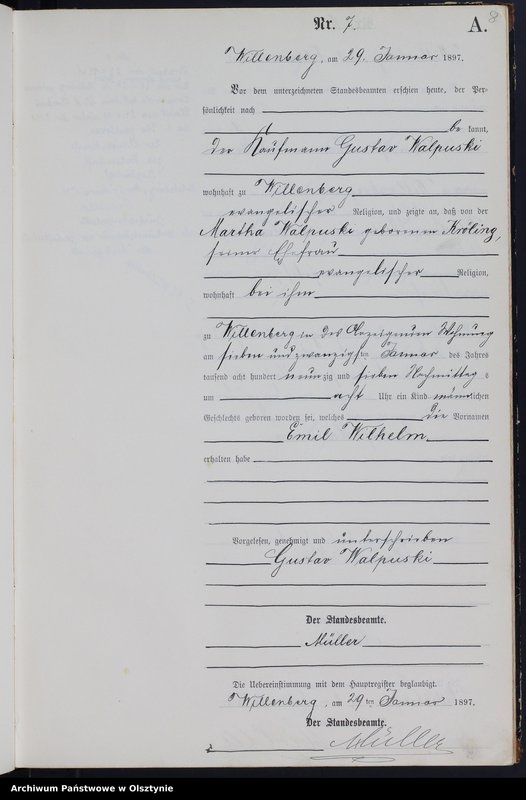 8
Nr. 7.
A.
Willenberg, am 29. Januar 1897.
Vor dem unterzeichneten Standesbeamten erschien heute, der Per-
sönlichkeit nach
be kannt,
der Kaufmann Gustav Walpuski
wohnhaft zu Willenberg
evangelischer Religion, und zeigte an, daß von der
Martha Walpuski geborenen Kröling,
seiner Ehefrau
evangelischer Religion,
wohnhaft bei ihm
zu Willenberg in des Anzeigenden Wohnung
am sieben und zwanzigsten Januar des Jahres
tausend acht hundert neunzig und sieben Nachmittag s
um acht Uhr ein Kind männlichen
Geschlechts geboren worden sei, welches die Vornamen
Emil Wilhelm
erhalten habe
Vorgelesen, genehmigt und unterschrieben
Gustav Walpuski
Der Standesbeamte.
Müller
Die Uebereinstimmung mit dem Hauptregister beglaubigt.
Willenberg, am 29 ten Januar 1897.
Der Standesbeamte.
Müller
Archiwum Państwowe w Olsztynie